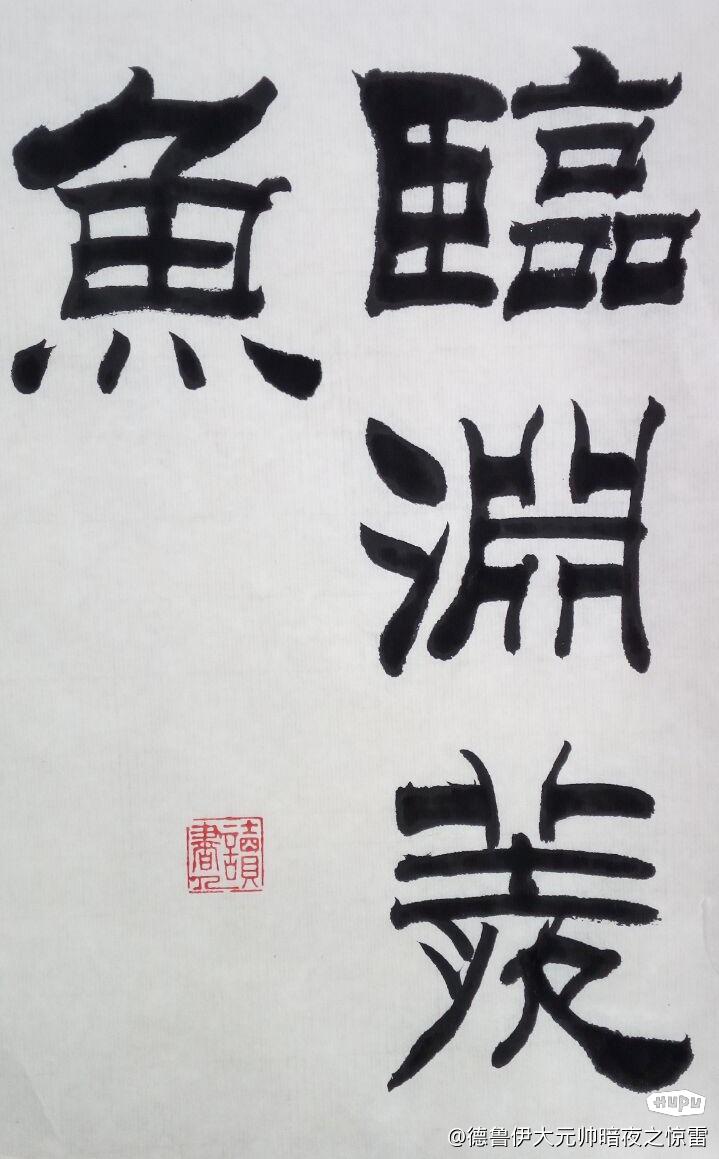 臨淵羨
魚
讀書人
HUPU
@德鲁伊大元帅暗夜之惊雷